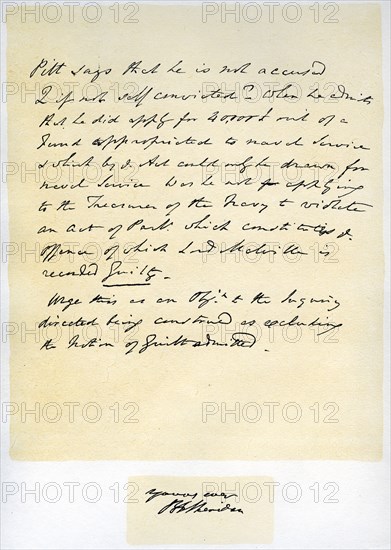 Pitt says that he is not accused
Q if not self convicted? When he admits
that he did apply for 40000£ out of a
Fund appropriated to naval Service
& which by Act could only be drawn for
naval Service Was he not applying
to the Treasurer of the Navy to violate
an act of Parlt which constitutes
offence of which Lord Melville is
recorded Guilty.
Urge this as an Objn to the Inquiry
directed being construed as excluding
the Notion of Guilt admitted.
yours ever
R B Sheridan
PHOTO 12